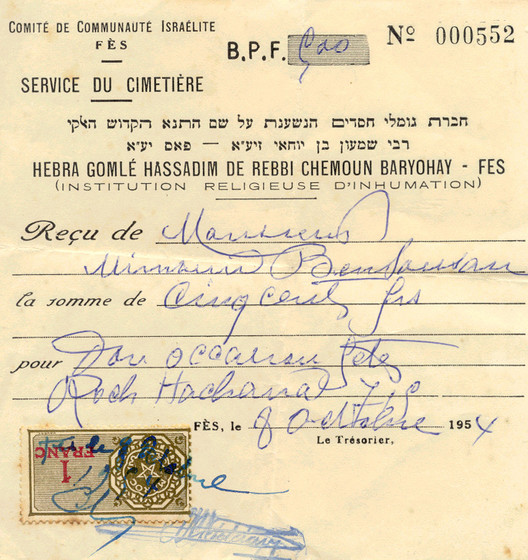 COMITÉ DE COMMUNAUTÉ ISRAÉLITE
FÈS
B.P.F. 500
Nº 000552
SERVICE DU CIMETIÈRE
חברת גומלי חסדים הנשענת על שם התנא הקדוש האקי
רבי שמעון בן יוחאי זיע״א — פאס יע״א
HEBRA GOMLÉ HASSADIM DE REBBI CHEMOUN BARYOHAY - FES
(INSTITUTION RELIGIEUSE D'INHUMATION)
Reçu de Monsieur
Mimoun
la somme de Cinq cents frs
pour Don occasion fête
Roch Hachana
FÈS, le 8 octobre 1954
Le Trésorier,
1
FRANC